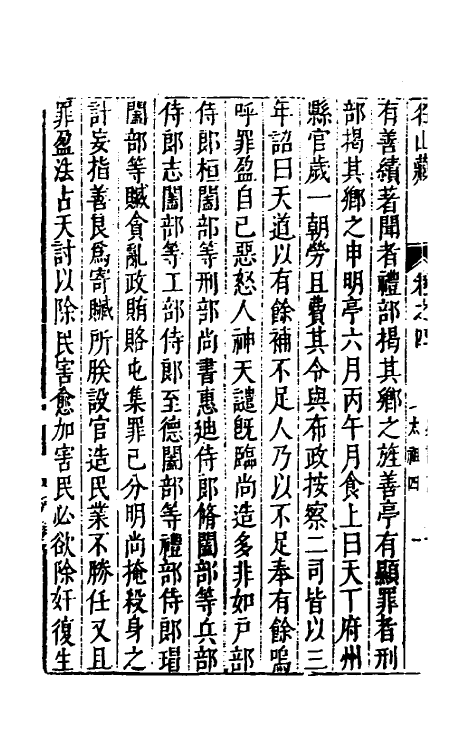 名山藏 卷之四 太祖四
有善績著聞者禮部揭其鄉之旌善亭有顯罪者刑
部揭其鄉之申明亭六月丙午月食上曰天下府州
縣官歲一朝勞且費其令與布政按察二司皆以三
年詔曰天道以有餘補不足人乃以不足奉有餘嗚
呼罪盈自己惡怒人神天譴旣臨尚造多非如戸部
侍郎桓闔部等刑部尚書惠迪侍郎脩闔部等兵部
侍郎志闔部等工部侍郎至德闔部等禮部侍郎瑁
闔部等贓貪亂政賄賂屯集罪已分明尚掩殺身之
計妄指善良爲寄贓所朕設官造民業不勝任又且
罪盈法占天討以除民害愈加害民必欲除奸復生